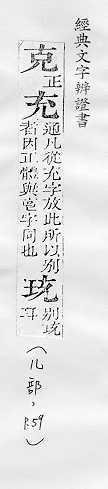 經典文字辨證書
克正
充通凡從充字放此所以別
者因正體與字同也
別
(儿部,P.59)